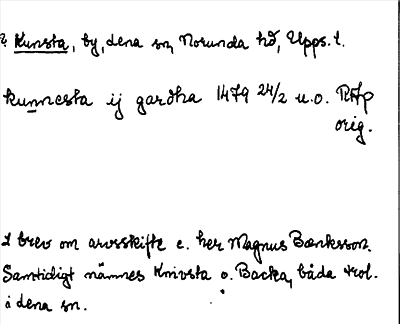 ? Kunsta, by, dena sn, Norunda hd, Upps. l.
kunnesta ij gardha 1479 24/2 u.o. RAp
orig.
I brev om arvsskifte e. her Magnus Bænktsson.
Samtidigt nämnes Knivsta o. Backa, båda trol.
i dena sn.